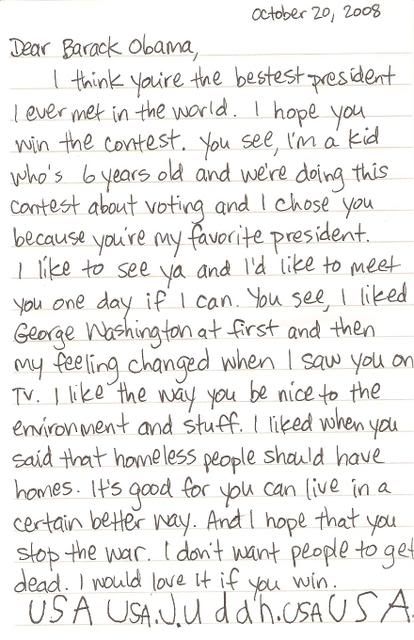 October 20, 2008
Dear Barack Obama,
I think you're the bestest president
I ever met in the world. I hope you
win the contest. You see, I'm a kid
who's 6 years old and we're doing this
contest about voting and I chose you
because you're my favorite president.
I like to see ya and I'd like to meet
you one day if I can. You see, I liked
George Washington at first and then
my feeling changed when I saw you on
TV. I like the way you be nice to the
environment and stuff. I liked when you
said that homeless people should have
homes. It's good for you can live in a
certain better way. And I hope that you
stop the war. I don't want people to get
dead. I would love it if you win.
USA USA. Juddah. USA USA.